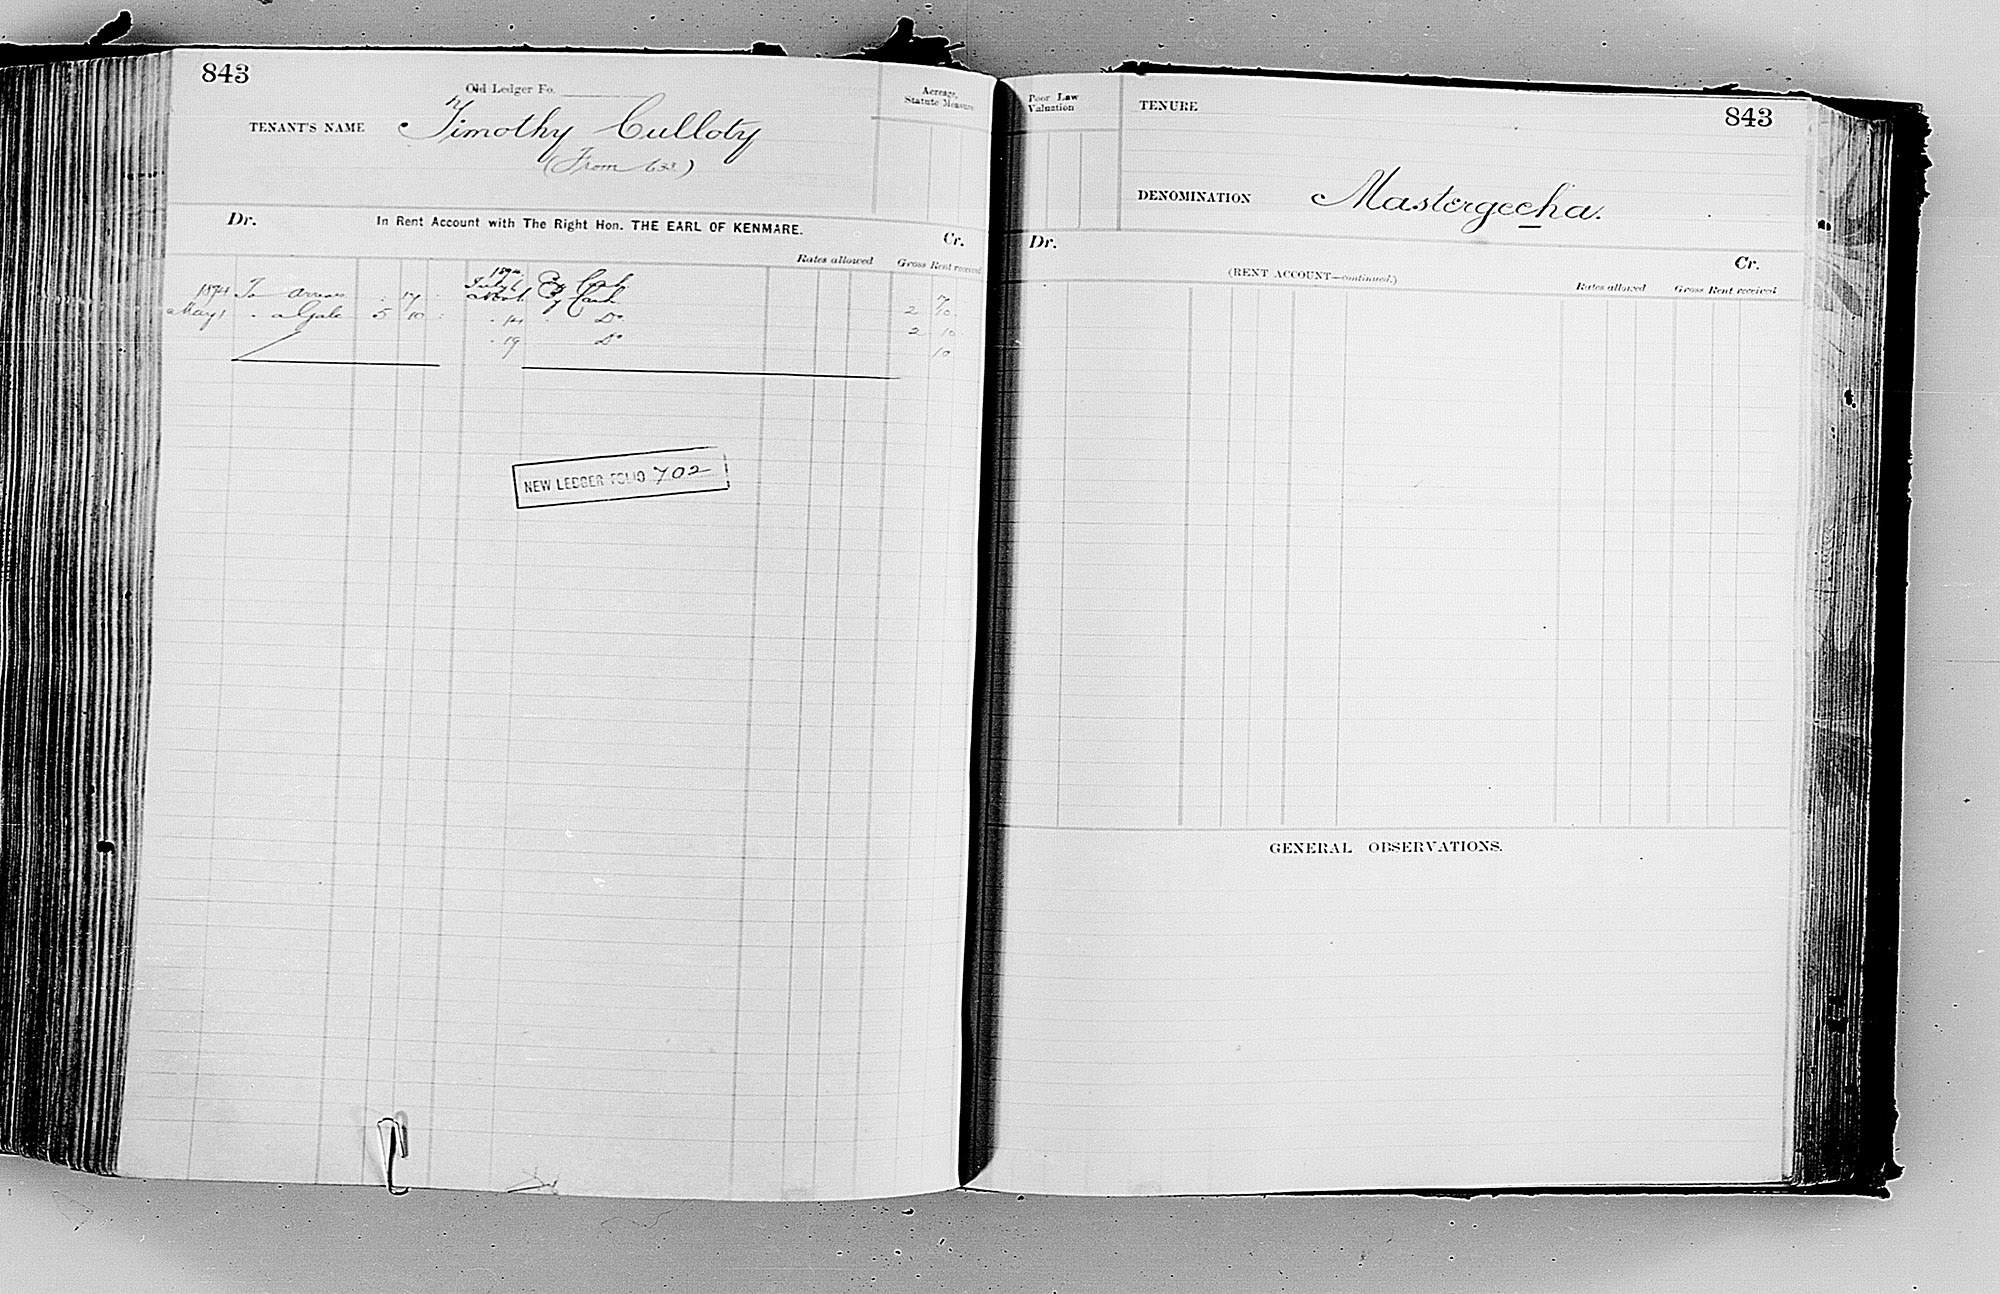 843
Old Ledger Fo.
TENANT'S NAME Timothy Culloty
(From 633)
Acreage, Statute Measure
Dr. In Rent Account with The Right Hon. THE EARL OF KENMARE. Cr.
Rates allowed Gross Rent received
1894 July 6 By Cash 7
1894 To arrears 17 By Cash 2 10
May 1 " a Gale 5 10 " 14 Do 2 10
" 19 Do 10
NEW LEDGER FOLIO 702
Poor Law Valuation
TENURE
843
DENOMINATION Mastergeeha.
Dr. (RENT ACCOUNT—continued.) Cr.
Rates allowed Gross Rent received
GENERAL OBSERVATIONS.